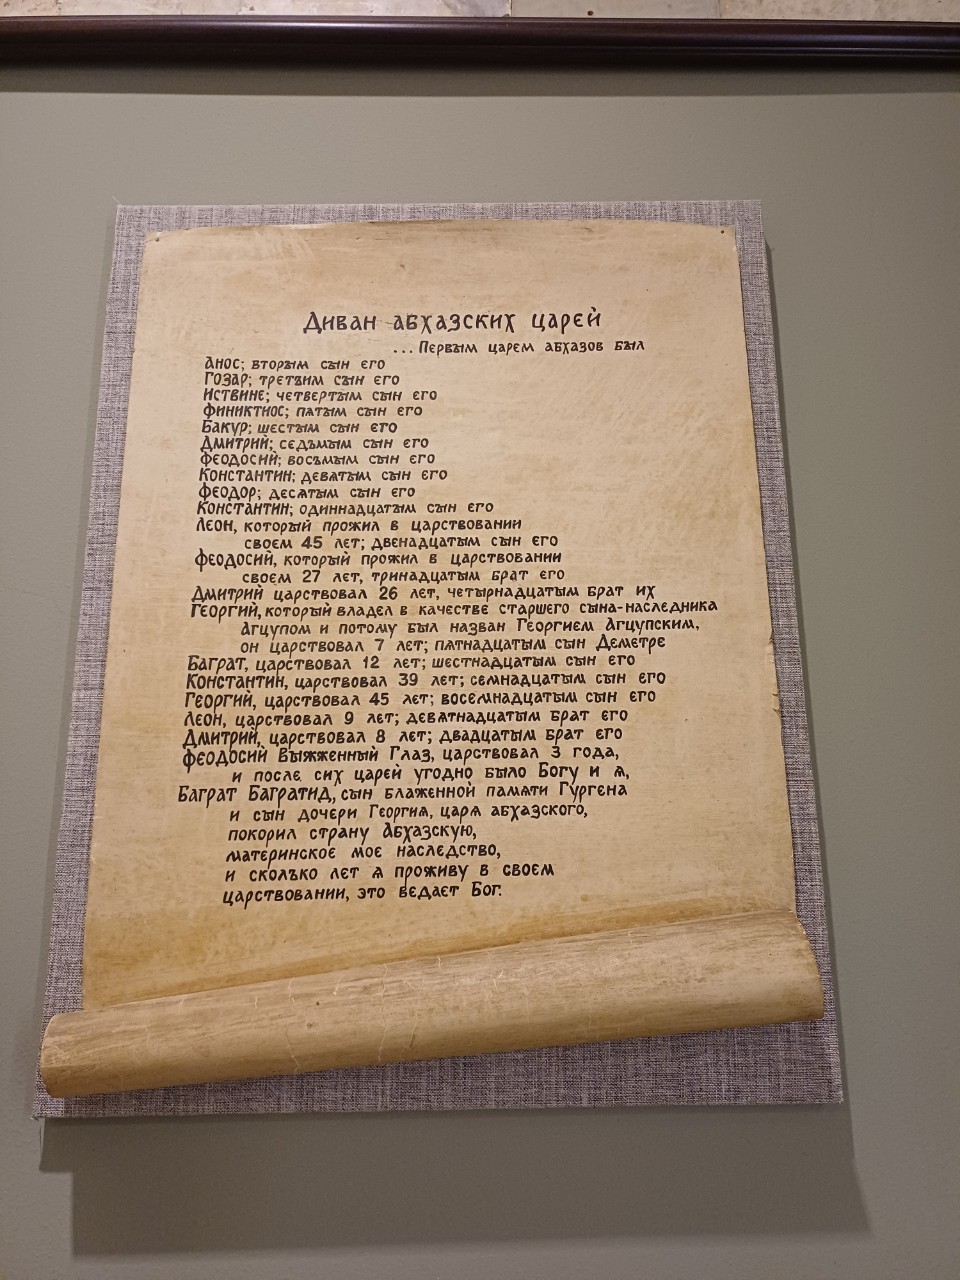 Диван абхазских царей
...Первым царем абхазов был
Анос; вторым сын его
Гозар; третьим сын его
Иствине; четвертым сын его
Финиктиос; пятым сын его
Бакур; шестым сын его
Дмитрий; седьмым сын его
Феодосий; восьмым сын его
Константин; девятым сын его
Феодор; десятым сын его
Константин; одиннадцатым сын его
Леон, который прожил в царствовании
своем 45 лет; двенадцатым сын его
Феодосий, который прожил в царствовании
своем 27 лет, тринадцатым брат его
Дмитрий царствовал 26 лет, четырнадцатым брат их
Георгий, который владел в качестве старшего сына-наследника
Агцупом и потому был назван Георгием Агцупским,
он царствовал 7 лет; пятнадцатым сын Деметре
Баграт, царствовал 12 лет; шестнадцатым сын его
Константин, царствовал 39 лет; семнадцатым сын его
Георгий, царствовал 45 лет; восемнадцатым сын его
Леон, царствовал 9 лет; девятнадцатым брат его
Дмитрий, царствовал 8 лет; двадцатым брат его
Феодосий Выжженный Глаз, царствовал 3 года,
и после сих царей угодно было Богу и я,
Баграт Багратид, сын блаженной памяти Гургена
и сын дочери Георгия, царя абхазского,
покорил страну Абхазскую,
материнское мое наследство,
и сколько лет я проживу в своем
царствовании, это ведает Бог.